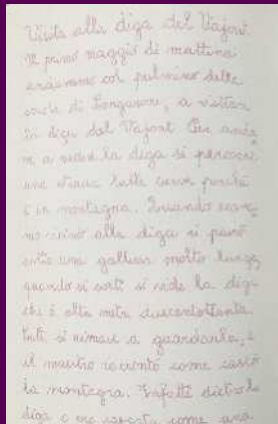 Visita alla diga del Vajont.
Il primo maggio di mattina
andammo col pulmino delle
scuole di Longarone, a visitare
la diga del Vajont. Per andare
a vedere la diga si percorre
una strada tutta curve perché
è in montagna. Quando
vicino alla diga si passò
entro una galleria molto lunga,
quando si sortì si vide la diga
che è alta metri duecentottanta
tutti si rimase a guardarla, e
il maestro raccontò come cascò
la montagna. Infatti dietro la
diga c'era cascata come una